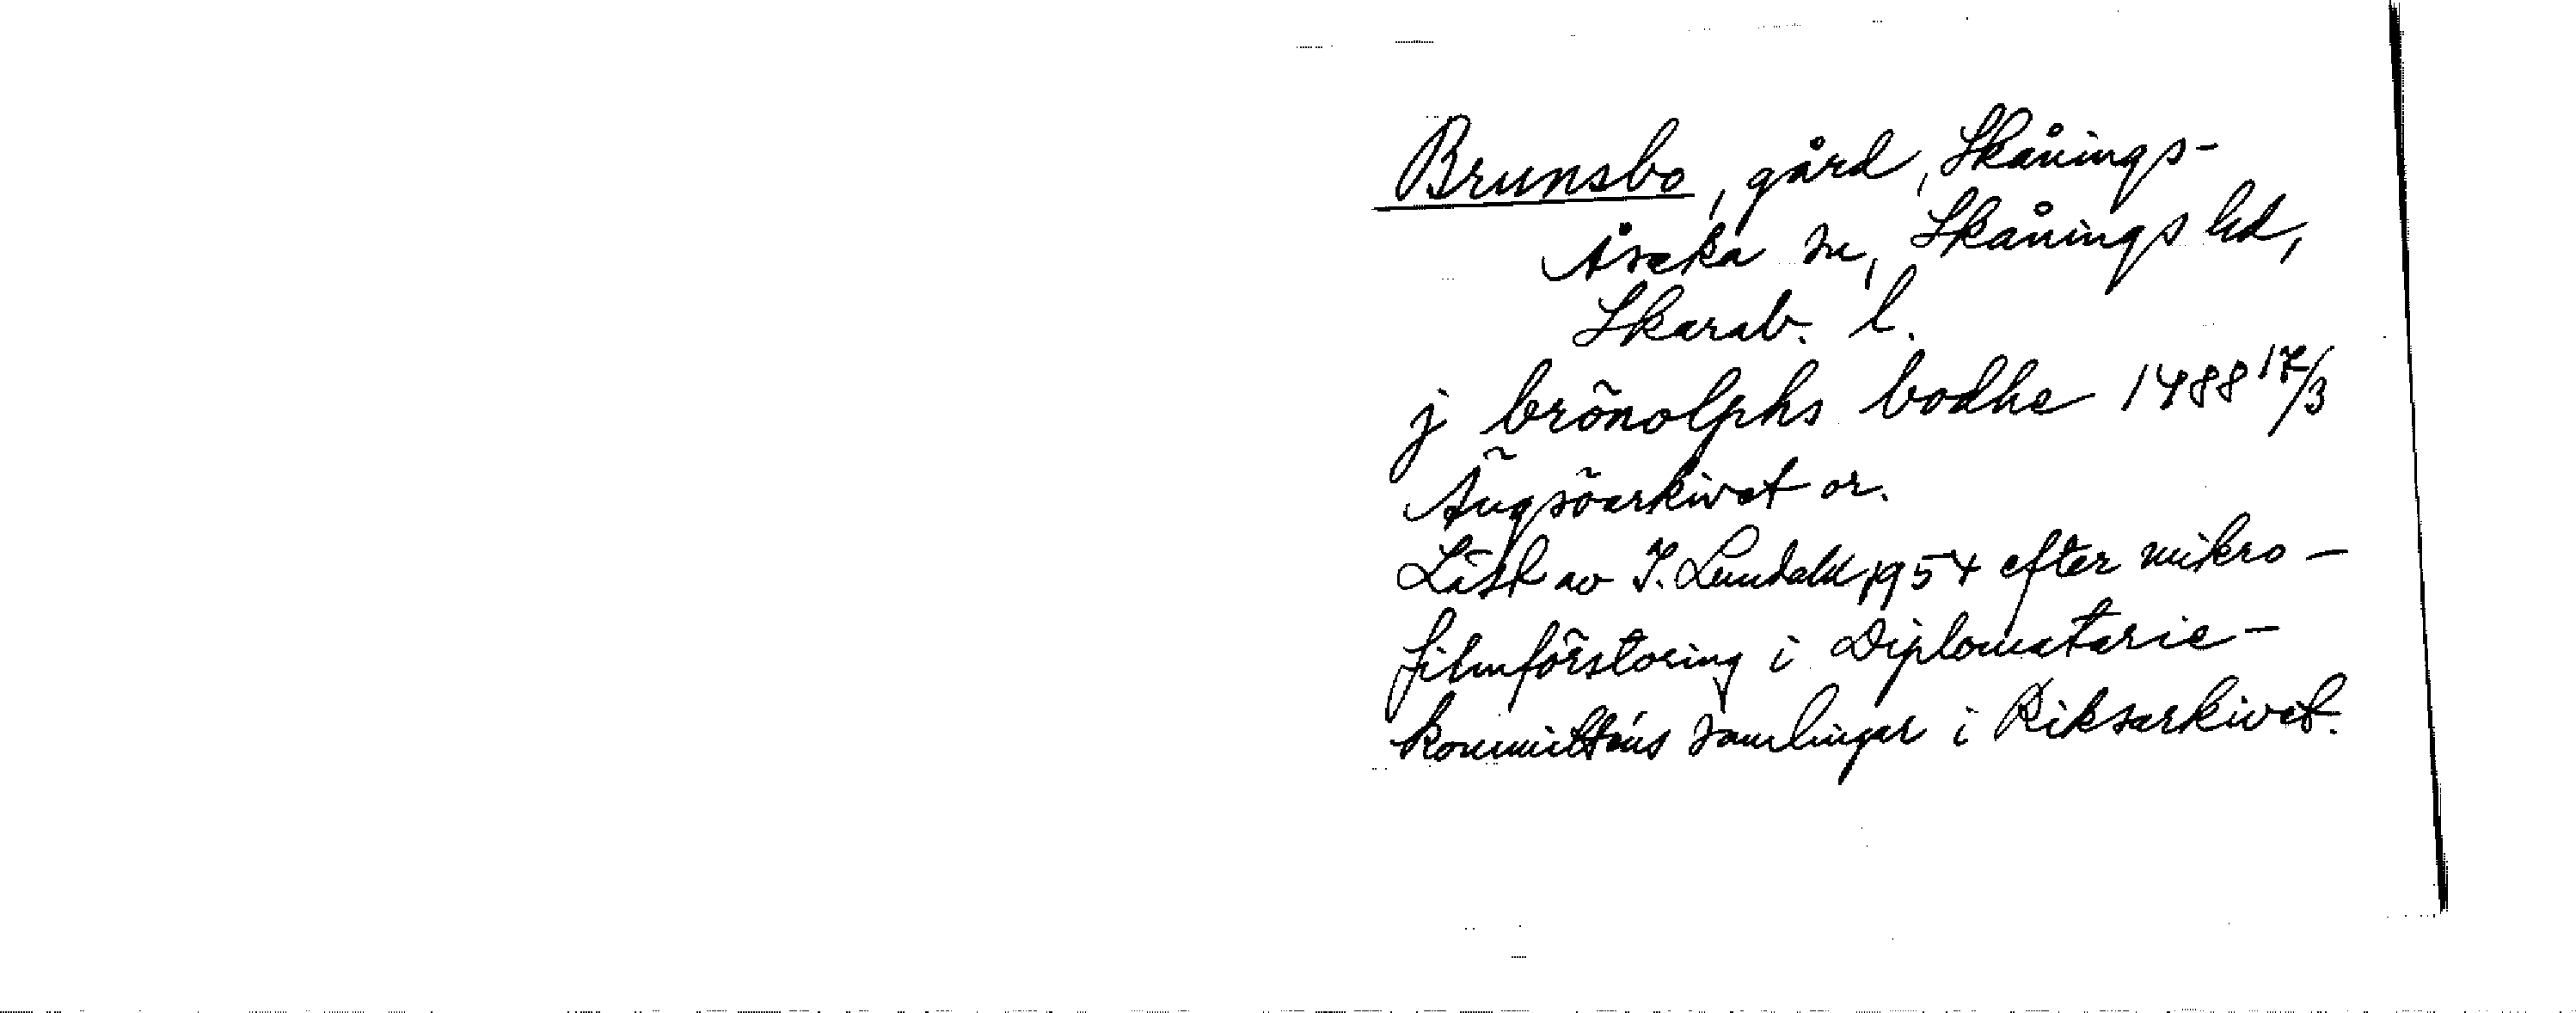 Brunsbo, gård, Skånings-
Åsaka sn, Skånings hd,
Skarab. l.
j brönolphs bodhe 1488 17/3
Ängsöarkivet or.
Läst av I. Lundahl 1954 efter mikro-
filmförstoring i Diplomatarie-
kommitténs samlingar i Riksarkivet.